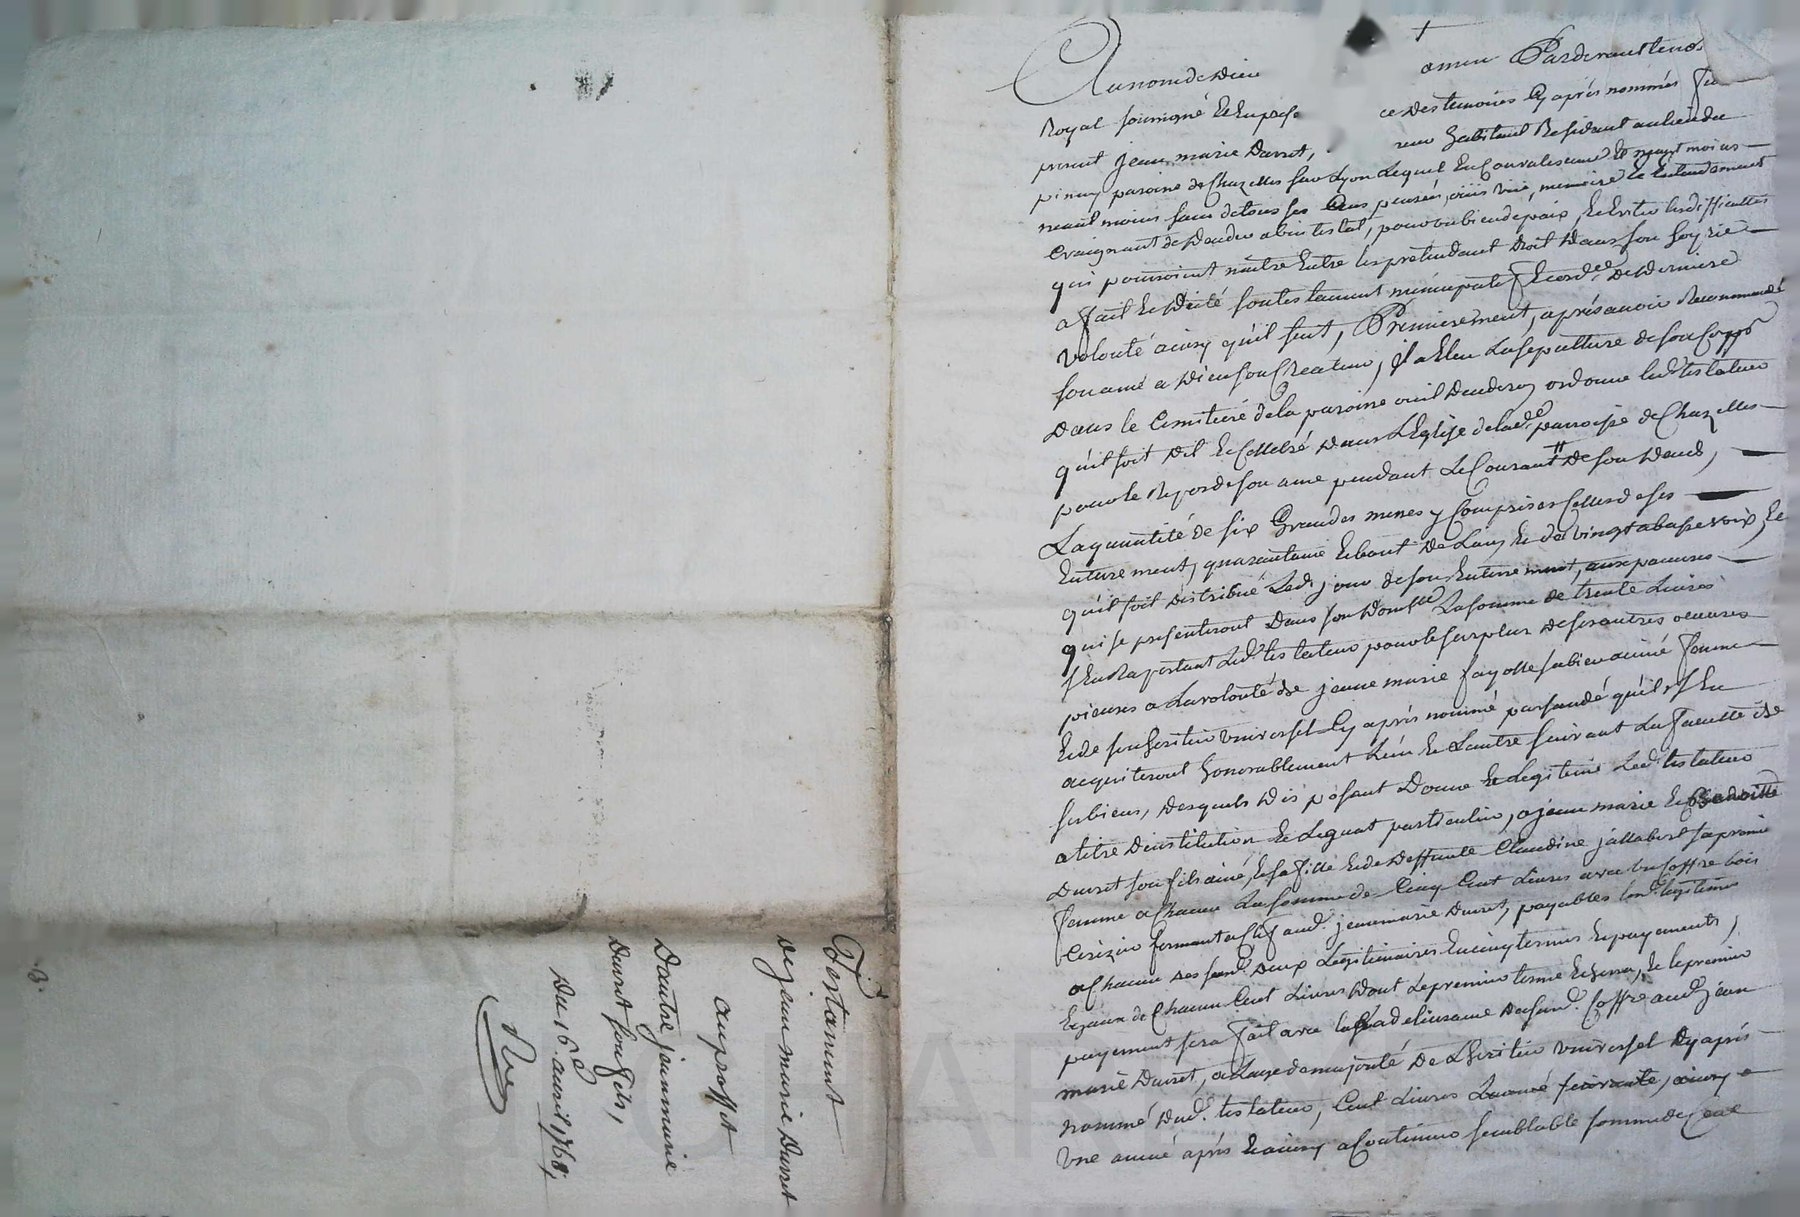 Testament
de jean marie Durret
au proffit
Dautre jean marie
Durret son fils,
Du 16e. avril 1768,
3.
Au nom de Dieu amen Pardevant le no
Royal soussigné Et En prese ce des temoins Cy après nommés fu
present jean marie Durret, habitant Residant au lieu du
pinay paroisse de Chazelles sur Lyon Lequel En Convalescence Et neant moins
neant moins sain de tous ses sens pensée, ouïe vüe, memoire Et Entendement
Craignant de deceder abintestat, pour un bien de paix, Et Eviter les difficultes
qui pourroient naitre Entre les prétendant droit Dans son hoyrie
a fait Et dicté son testament nuncupatif Et ordce. de derniere
volonté ainsy qu'il suit, Premierement, après avoir Recommandé
son ame a Dieu son Createur, jl a Eleu La sepulture de son Corps
Dans le Cimitiere de la paroisse ou il Decedera ordonne led. testateur
qu'il soit dit Et Cellebré Dans L'Eglise de lade. parroisse de Chazelles
pour le Repos de son ame pendant Le Courant de son deceds,
La quantité de six Grandes messes y Comprises Celles de ses
Enterrement, quarantaine Et bout De L'an, Et de vingt a basse voix, Et
qu'il soit distribué Led. jour de son Enterrement, aux pauvres
qui se presenteront Dans son Domlle. La somme de trente Livres
s'En Raportant Led. testateur pour le surplus de ses autres oeuvres
pieuses a La volonté de jeanne marie fayolle sa bien aimé femme
Et de son heritier universel Cy après nommé persuadé qu'ils s'En
acquiteront honorablement L'un Et L'autre suivant La faculté de
ses biens, Desquels Disposant Donne Et Legitime Led. testateur
a titre D'institution Et Legat particulier, a jean marie Et Benoitte
Durret son fils ainé, Et sa fille Et de Deffunte Claudine jallabert sa premie
femme a Chacun La somme de Cinq Cent Livres avec un Coffre bois
Cerizier fermant a Clef aud. jean marie Durret, payables
a Chacun des sesd. Deux Legitimaires En cinq termes Et payements,
Egaux de Chacun Cent Livres Dont Le premier terme Echerra, Et le premier
payement sera fait avec La delivrance dud. Coffre aud. jean
marie Durret, a L'age de majorité De L'heritier universel Cy après
nommé Dud. testateur, Cent Livres L'année suivante, ainsy a
une année après Et ainsy a Continuer semblable somme de Cent